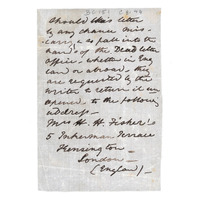 Should this letter
by any chance mis-
carry & as path into the
hands of the Dead Letter
office - whether in Eng
land or abroad, they
are requested by the
writer to return it un
opened to the following
address -
Mrs H. H. Fisher's
5 Inkerman Terrace
Kensington -
London -
(England) -